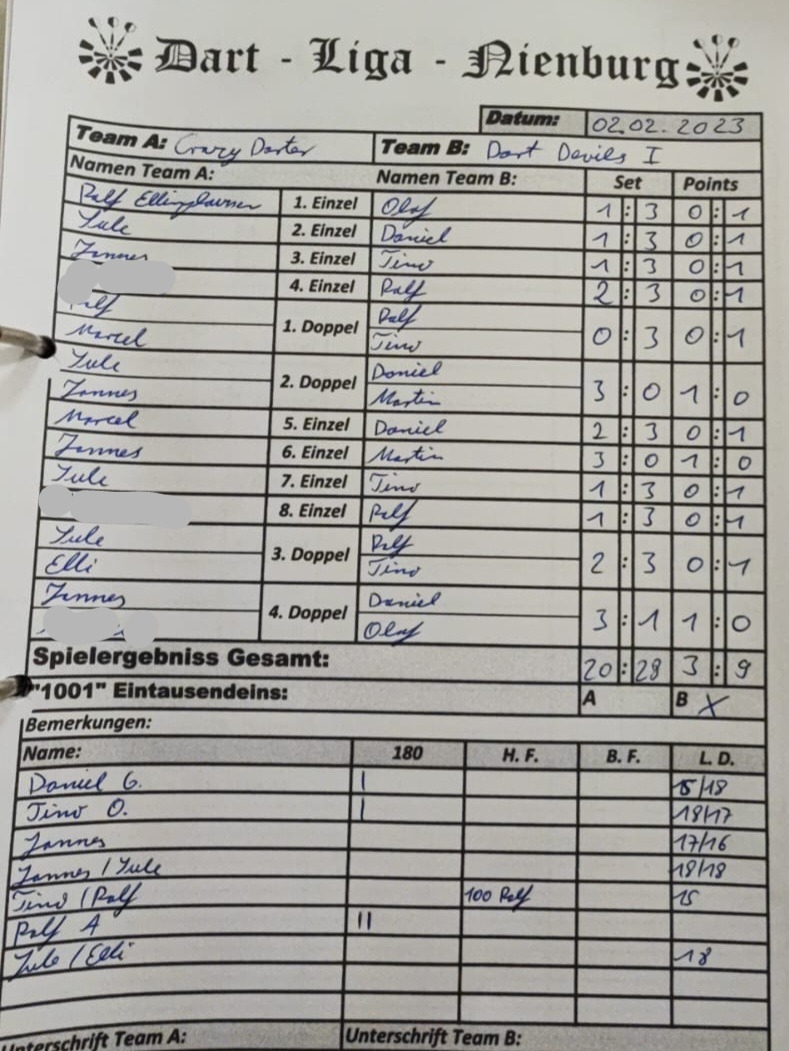 Dart - Liga - Nienburg
Datum: 02.02.2023
Team A: Crazy Darter Team B: Dart Devils I
Namen Team A: Namen Team B: Set Points
Ralf Ellinghausen 1. Einzel Olaf 1 : 3 0 : 1
Jule 2. Einzel Daniel 1 : 3 0 : 1
Jannes 3. Einzel Tino 1 : 3 0 : 1
4. Einzel Ralf 2 : 3 0 : 1
Ralf 1. Doppel Ralf 0 : 3 0 : 1
Marcel Tino
Jule 2. Doppel Daniel 3 : 0 1 : 0
Jannes Martin
Marcel 5. Einzel Daniel 2 : 3 0 : 1
Jannes 6. Einzel Martin 3 : 0 1 : 0
Jule 7. Einzel Tino 1 : 3 0 : 1
8. Einzel Ralf 1 : 3 0 : 1
Jule 3. Doppel Ralf 2 : 3 0 : 1
Elli Tino
Jannes 4. Doppel Daniel 3 : 1 1 : 0
Olaf
Spielergebniss Gesamt: 20 : 28 3 : 9
"1001" Eintausendeins: A B X
Bemerkungen:
Name: 180 H. F. B. F. L. D.
Daniel G. | 15/18
Tino O. | 18/17
Jannes 17/16
Jannes / Jule 18/18
Tino / Ralf 100 Ralf 15
Ralf A ||
Jule / Elli 18
Unterschrift Team A: Unterschrift Team B: